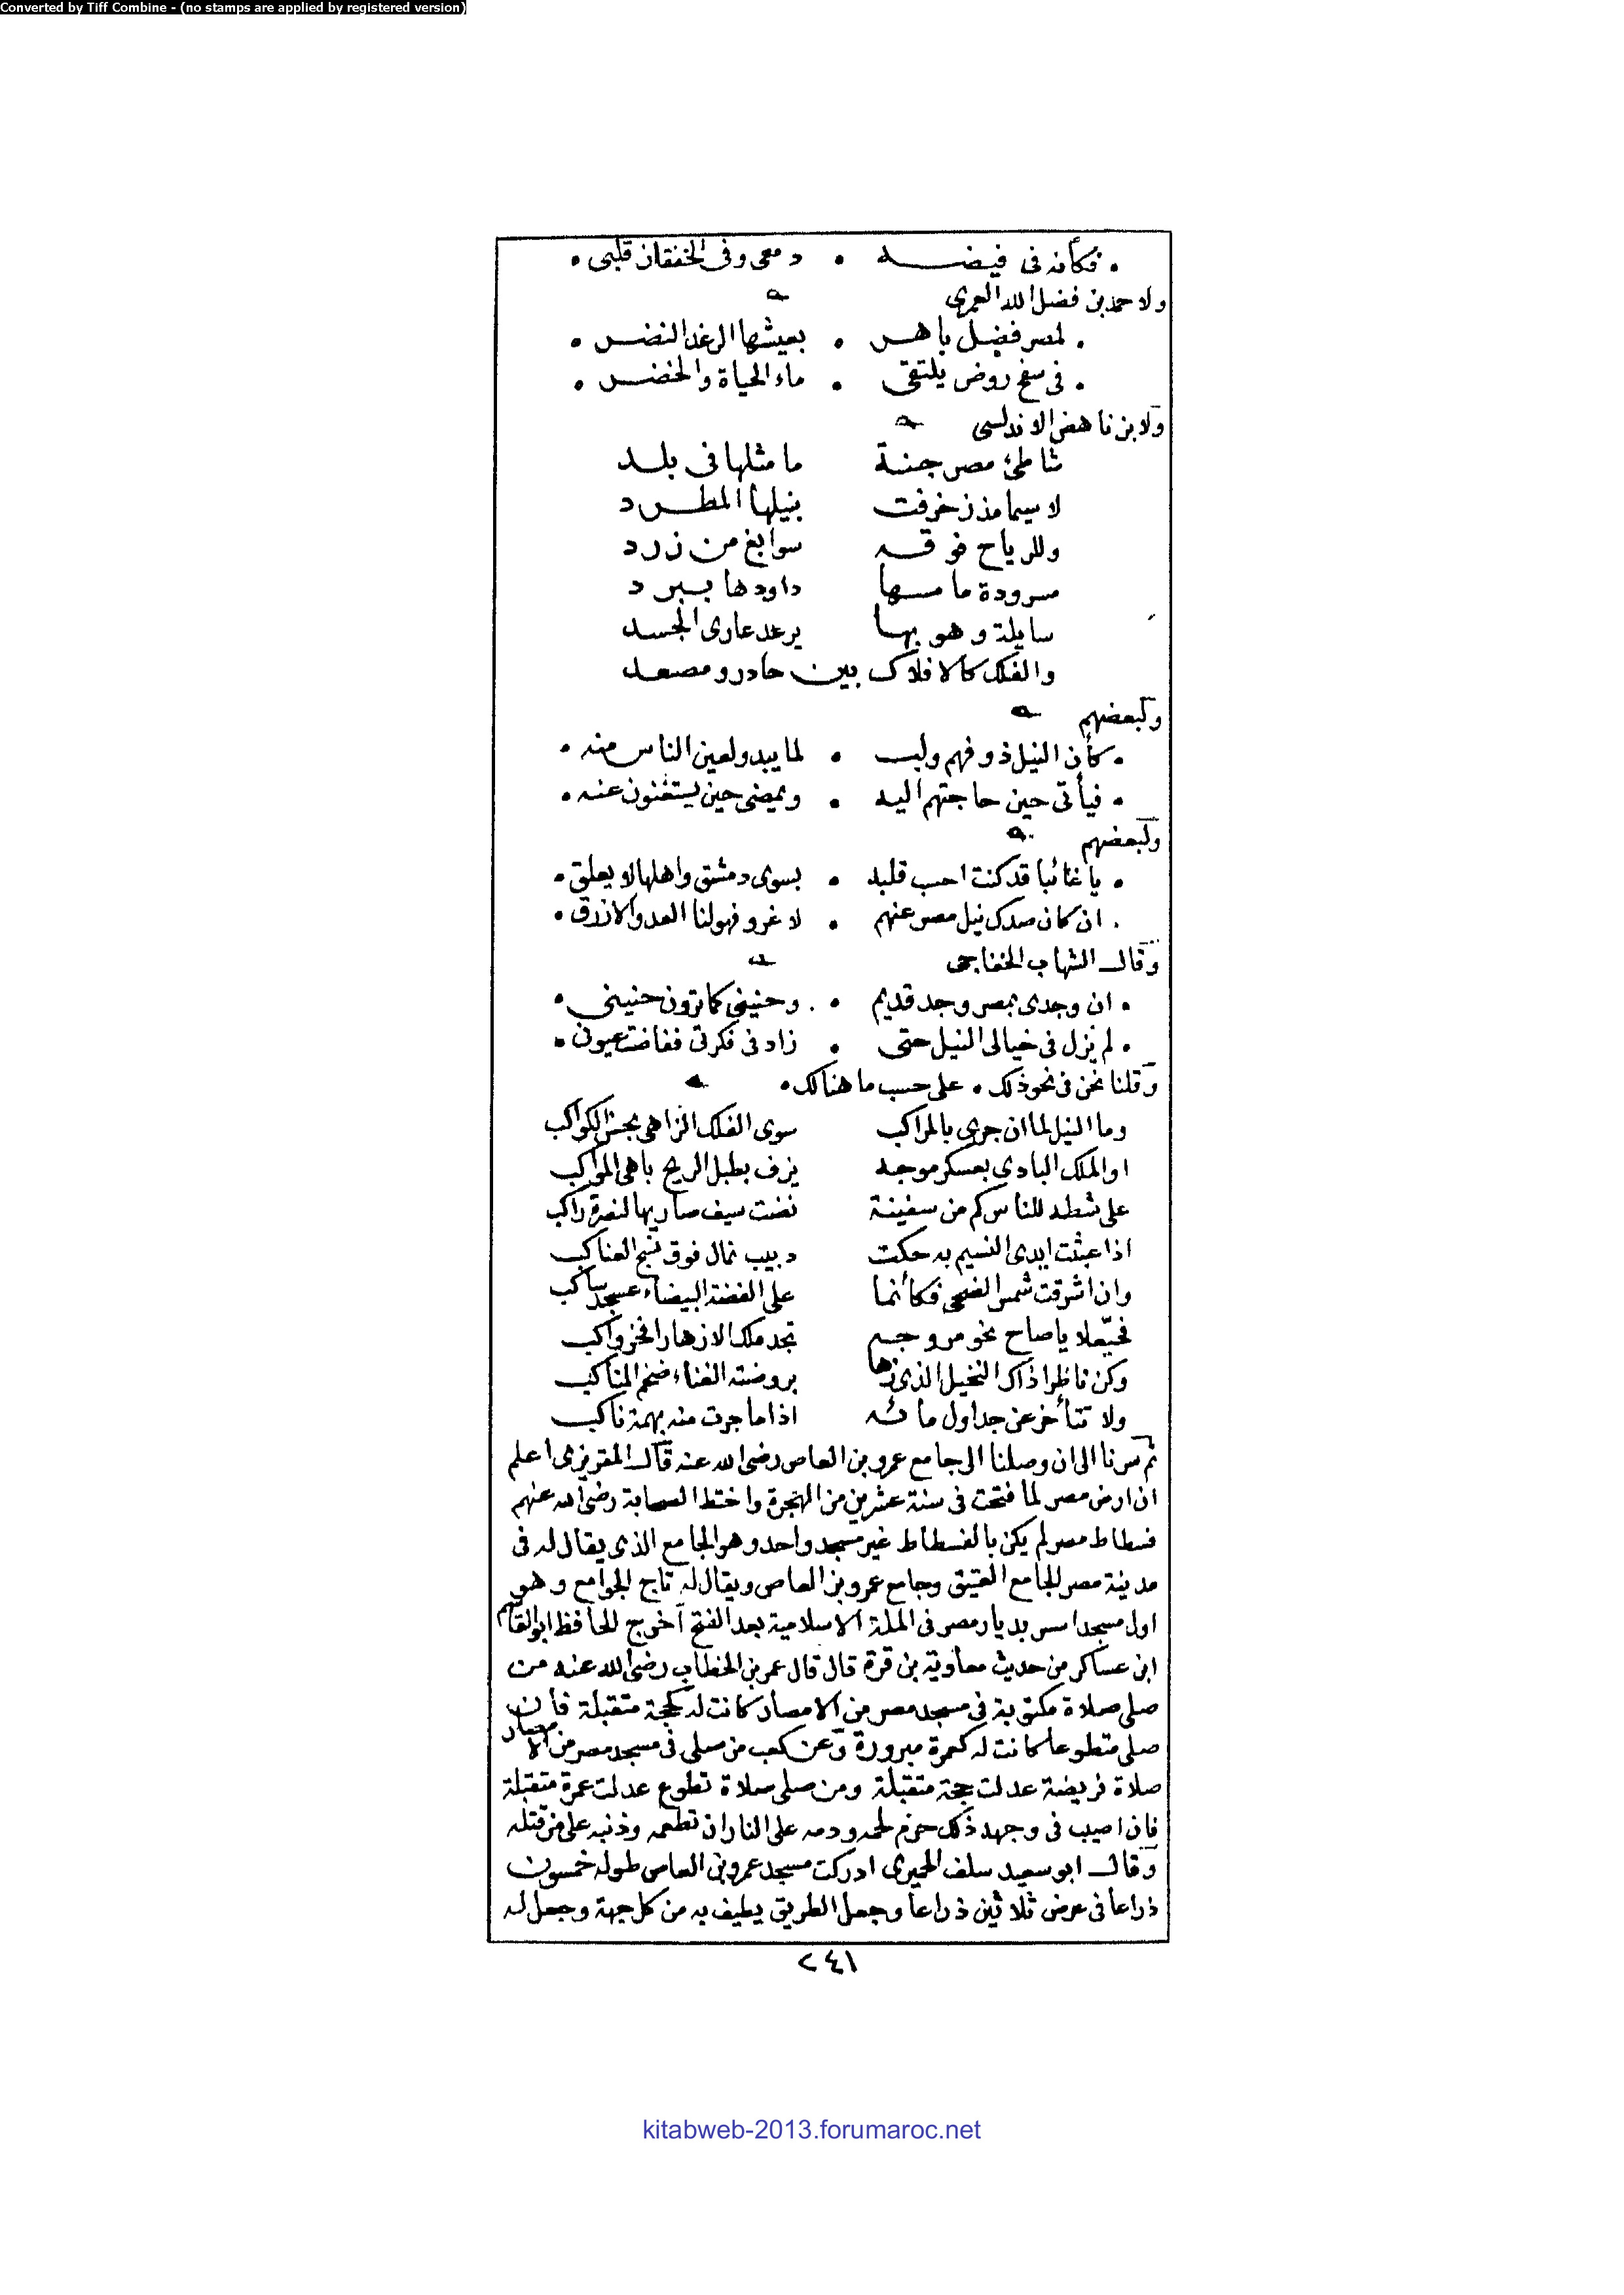 Converted by Tiff Combine - (no stamps are applied by registered version)
• فكأنه فى فيضه • دمعى وفى الخفقان قلبى •
ولاحمد بن فضل الله العمرى
• لمصر فضل باهر • بعيشها الرغد النضر •
• فى سفح روض يلتقى • ماء الحياة والخضر •
ولابن ناهض الاندلسى
شاطئ مصر جنة ما مثلها فى بلد
لا سيما مذ زخرفت بنيلها المطرد
وللرياح فوقه سوابغ من زرد
مسرودة ما مسها داودها بمبرد
سايلة وهو بها يرعد عارى الجسد
والفلك كالافلاك بين حادر ومصعد
ولبعضهم
• كأن النيل ذو فهم ولب • لما يبدو لعين الناس منه •
• فيأتى حين حاجتهم اليه • ويمضى حين يستغنون عنه •
ولبعضهم
• يا غائبا قد كنت احسب قلبه • بسوى دمشق واهلها لا يعلق •
• ان كان صدك نيل مصر عنهم • لا غرو فهو لنا العدو الازرق •
وقال الشهاب الخفاجى
• ان وجدى بمصر وجد قديم • وحنينى كما ترون حنينى •
• لم يزل فى خيالى النيل حتى • زاد فى فكرتى ففاضت عيونى •
وقلنا نحن فى نحو ذلك • على حسب ما هنالك •
وما النيل لما ان جرى بالمراكب سوى الفلك الزاهى بحسن الكواكب
او الملك البادى بعسكر موجه يزف بطبل الريح باهى المواكب
على شطه للناس كم من سفينة نضت سيف صاريها لنصرة راكب
اذا عبثت ايدى النسيم به حكت دبيب نمال فوق نسج العناكب
وان اشرقت شمس الضحى فكأنما على الفضة البيضاء عسجد ساكب
فحيّعلا يا صاح نحو مروجه تجد ملك الازهار افخر واكب
وكن ناظرا ذاك النخيل الذى زها بروضته الغناء ضخم المناكب
ولا تتأخر عن جداول مائه اذا ما جرت منه بهمة ناكب
ثم سرنا الى ان وصلنا الى جامع عمرو بن العاص رضى الله عنه قال المقريزى اعلم
ان ارض مصر لما فتحت فى سنة عشرين من الهجرة واختط الصحابة رضى الله عنهم
فسطاط مصر لم يكن بالفسطاط غير مسجد واحد وهو الجامع الذى يقال له فى
مدينة مصر الجامع العتيق وجامع عمرو بن العاص ويقال له تاج الجوامع وهو
اول مسجد اسس بديار مصر فى الملة الاسلامية بعد الفتح أخرج الحافظ ابو القاسم
ابن عساكر من حديث معاوية بن قرة قال قال عمر بن الخطاب رضى الله عنه من
صلى صلاة مكتوبة فى مسجد مصر من الامصار كانت له كحجة متقبلة فان
صلى متطوعا كانت له كعمرة مبرورة وعن كعب من صلى فى مسجد مصر من الامصار
صلاة فريضة عدلت حجة متقبلة ومن صلى صلاة تطوع عدلت عمرة متقبلة
فان اصيب فى وجهه ذلك حرم لحمه ودمه على النار ان تطعمه وذنبه على من قتله
وقال ابو سعيد سلف الحميرى ادركت مسجد عمرو بن العاص طوله خمسون
ذراعا فى عرض ثلاثين ذراعا وجعل الطريق يطيف به من كل جهة وجعل له
٢٤١
kitabweb-2013.forumaroc.net